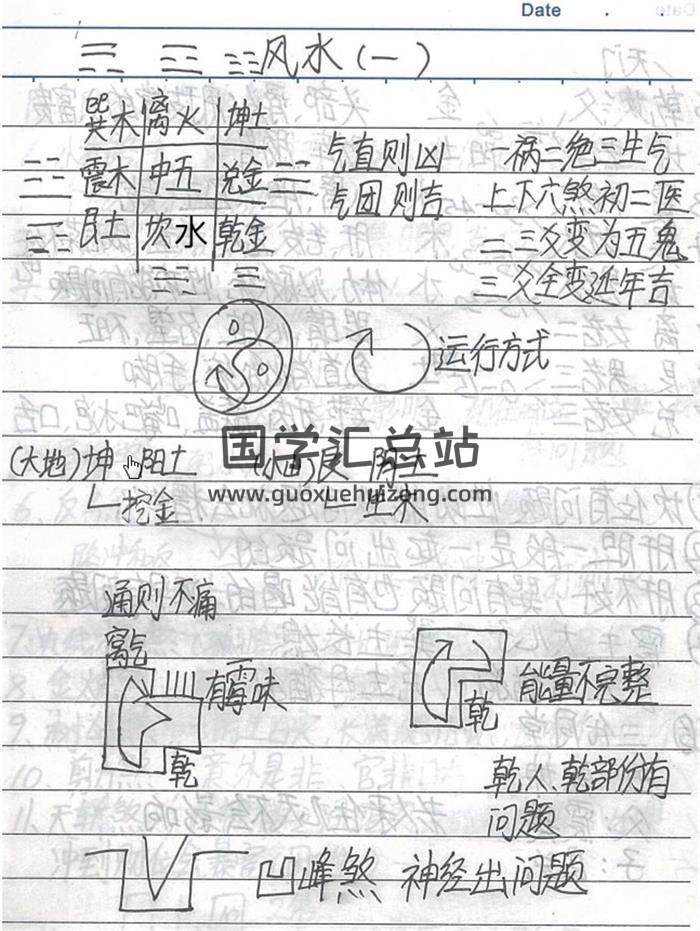 Date
风水(一)
巽木 离火 坤土
震木 中五 兑金
艮土 坎水 乾金
气直则凶 一祸二绝三生气
气团则吉 上下六煞初二医
二三爻变为五鬼
三爻全变延年吉
运行方式
国学汇总站
www.guoxuehuizong.com
(大地)坤 阳土
挖金
通则不痛
有霉味
乾
能量不完整
乾
乾人、乾部份有
问题
凹峰煞 神经出问题